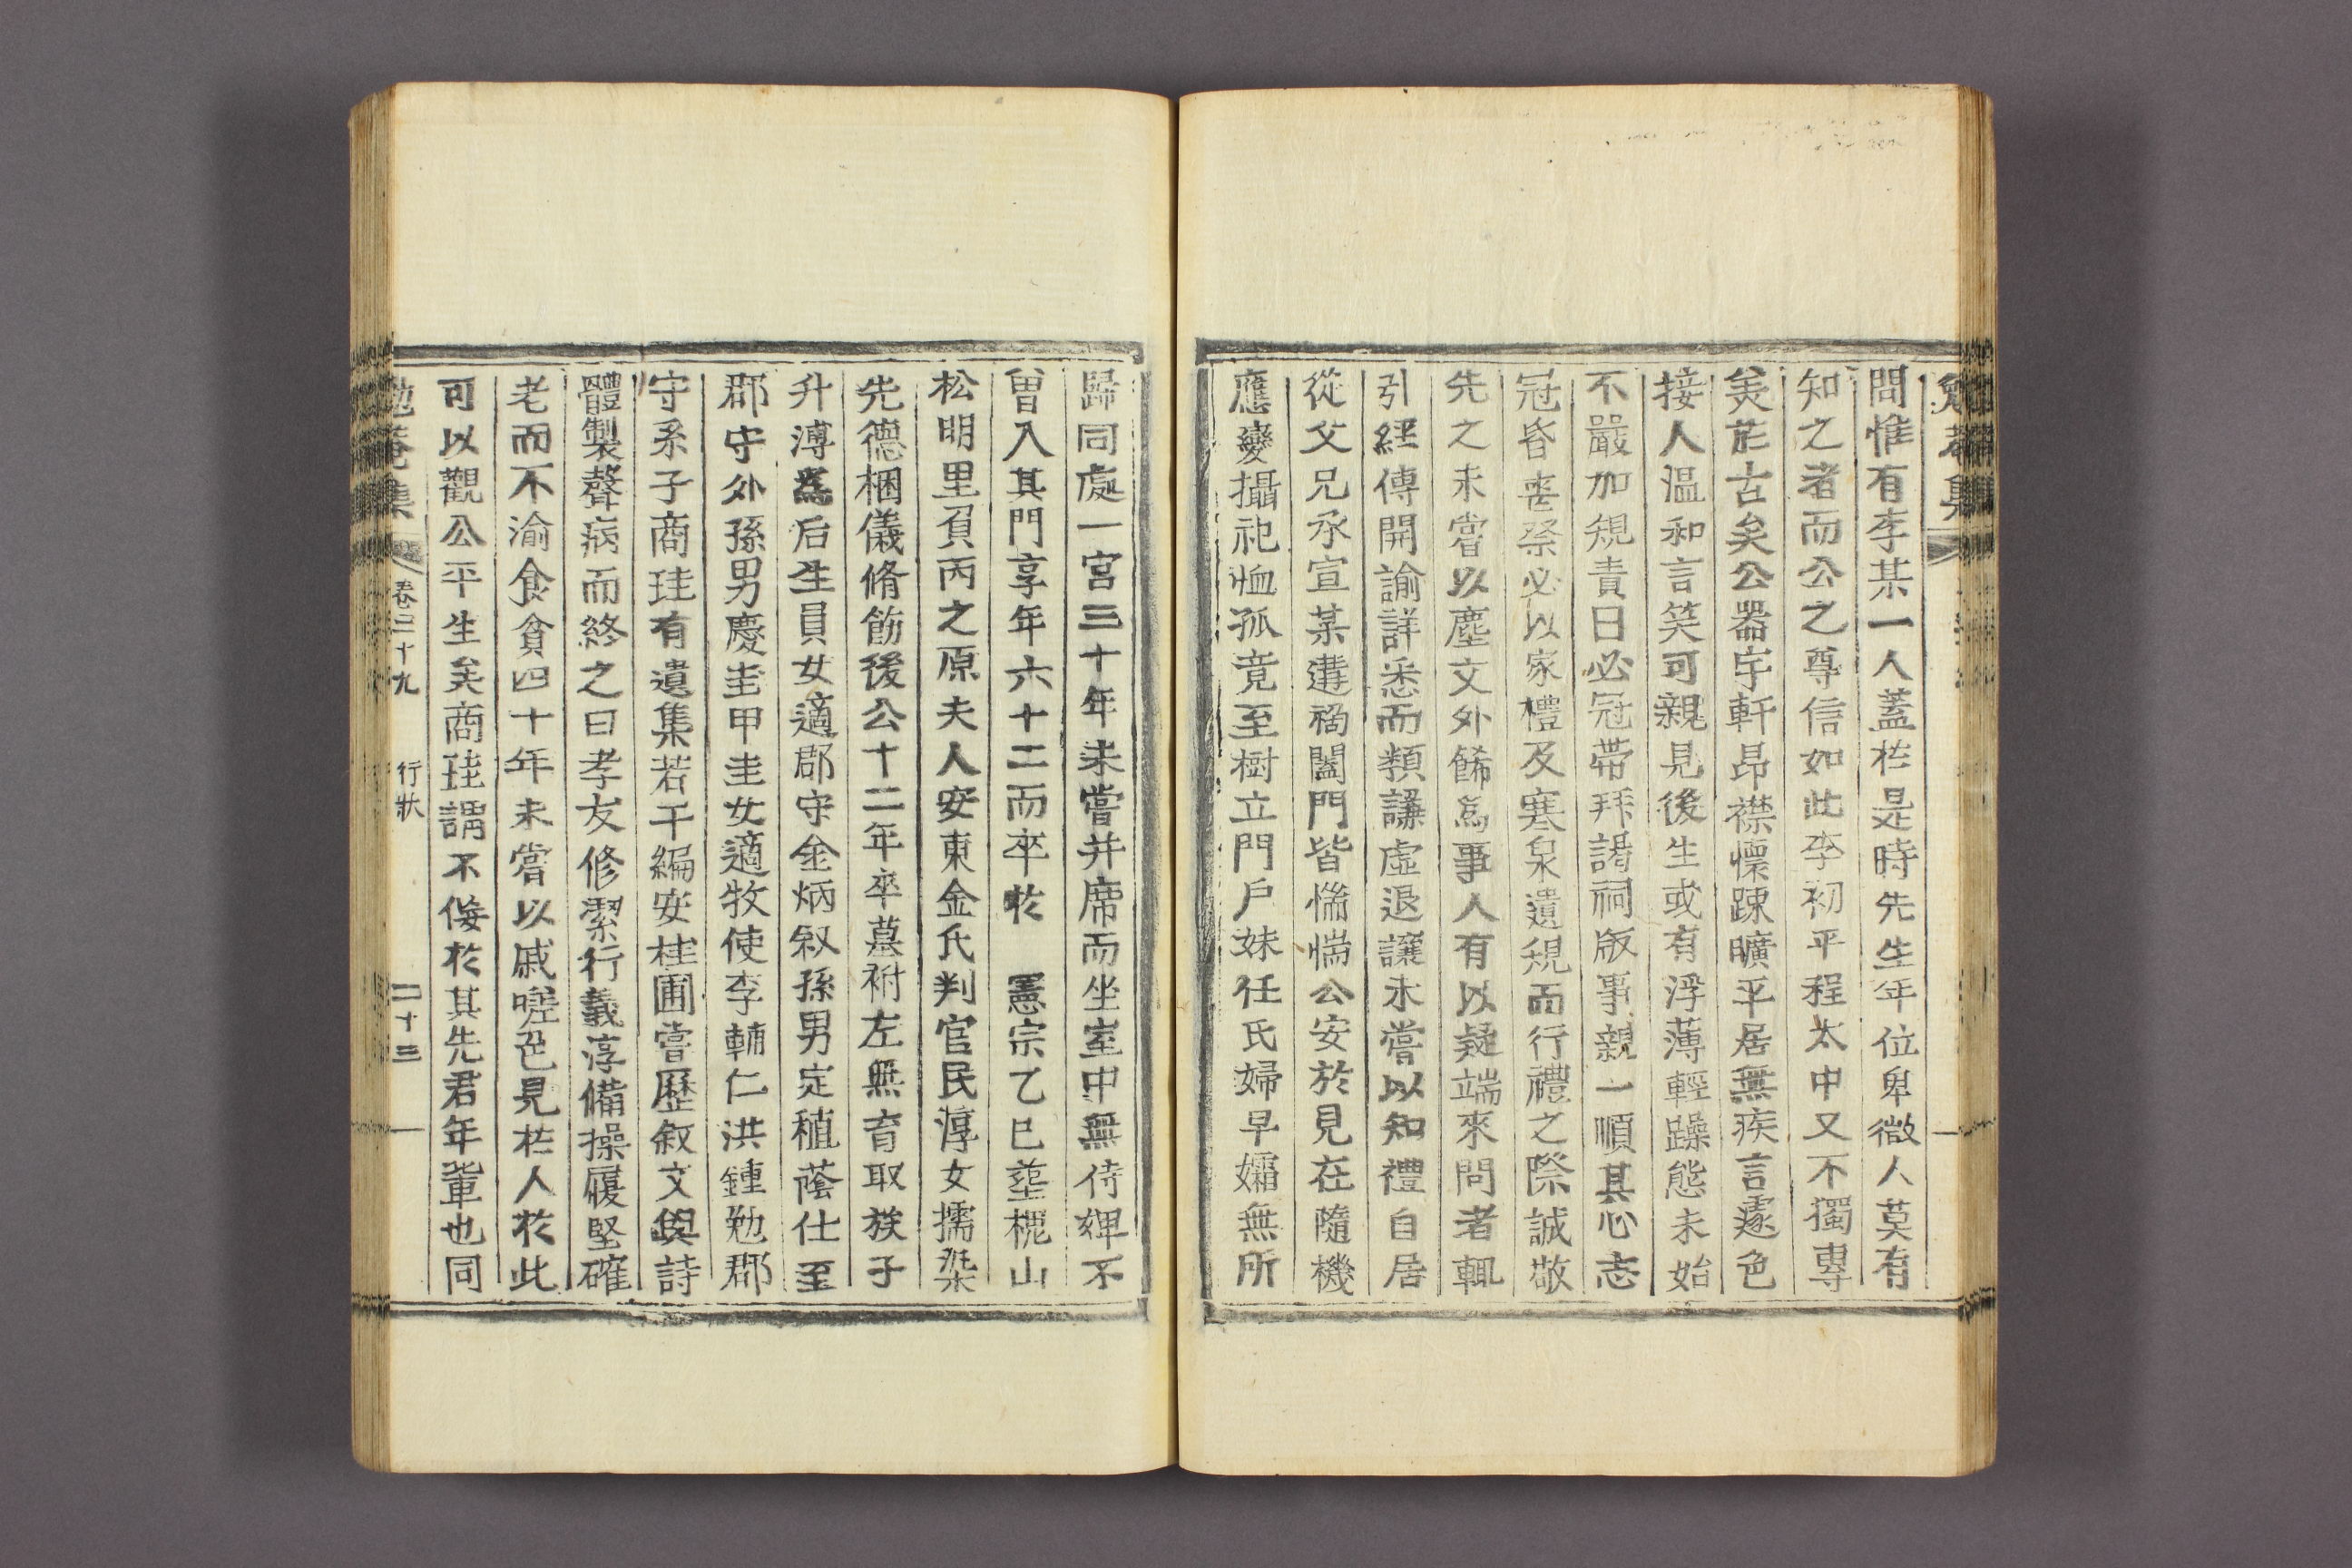 勉菴集
問惟有李某一人蓋於是時先生年位卑微人莫有
知之者而公之尊信如此李初平程太中又不獨專
美於古矣公器宇軒昂襟懷踈曠平居無疾言遽色
接人溫和言笑可親見後生或有浮薄輕躁態未始
不嚴加規責日必冠帶拜謁祠版事親一順其心志
冠昏喪祭必以家禮及寒泉遺規而行禮之際誠敬
先之未嘗以塵文外餙爲事人有以疑端來問者輒
引經傳開諭詳悉而類謙虛退讓未嘗以知禮自居
從父兄承宣某遘禍闔門皆惴惴公安於見在隨機
應變攝祀恤孤竟至樹立門戶妹任氏婦早孀無所
歸同處一宮三十年未嘗并席而坐室中無侍婢不
曾入其門享年六十二而卒於 憲宗乙巳葬槐山
松明里負丙之原夫人安東金氏判官民淳女擩染
先德梱儀脩飭後公十二年卒墓祔左無育取族子
升溥爲后生員女適郡守金炳叙孫男定稙蔭仕至
郡守外孫男慶圭甲圭女適牧使李輔仁洪鍾勉郡
守系子商珪有遺集若干編安桂圃嘗歷叙文與詩
體製聲病而終之曰孝友修潔行義淳備操履堅確
老而不渝食貧四十年未嘗以戚嗟色見於人於此
可以觀公平生矣商珪謂不佞於其先君年輩也同
勉菴集 卷二十九 行狀 二十三